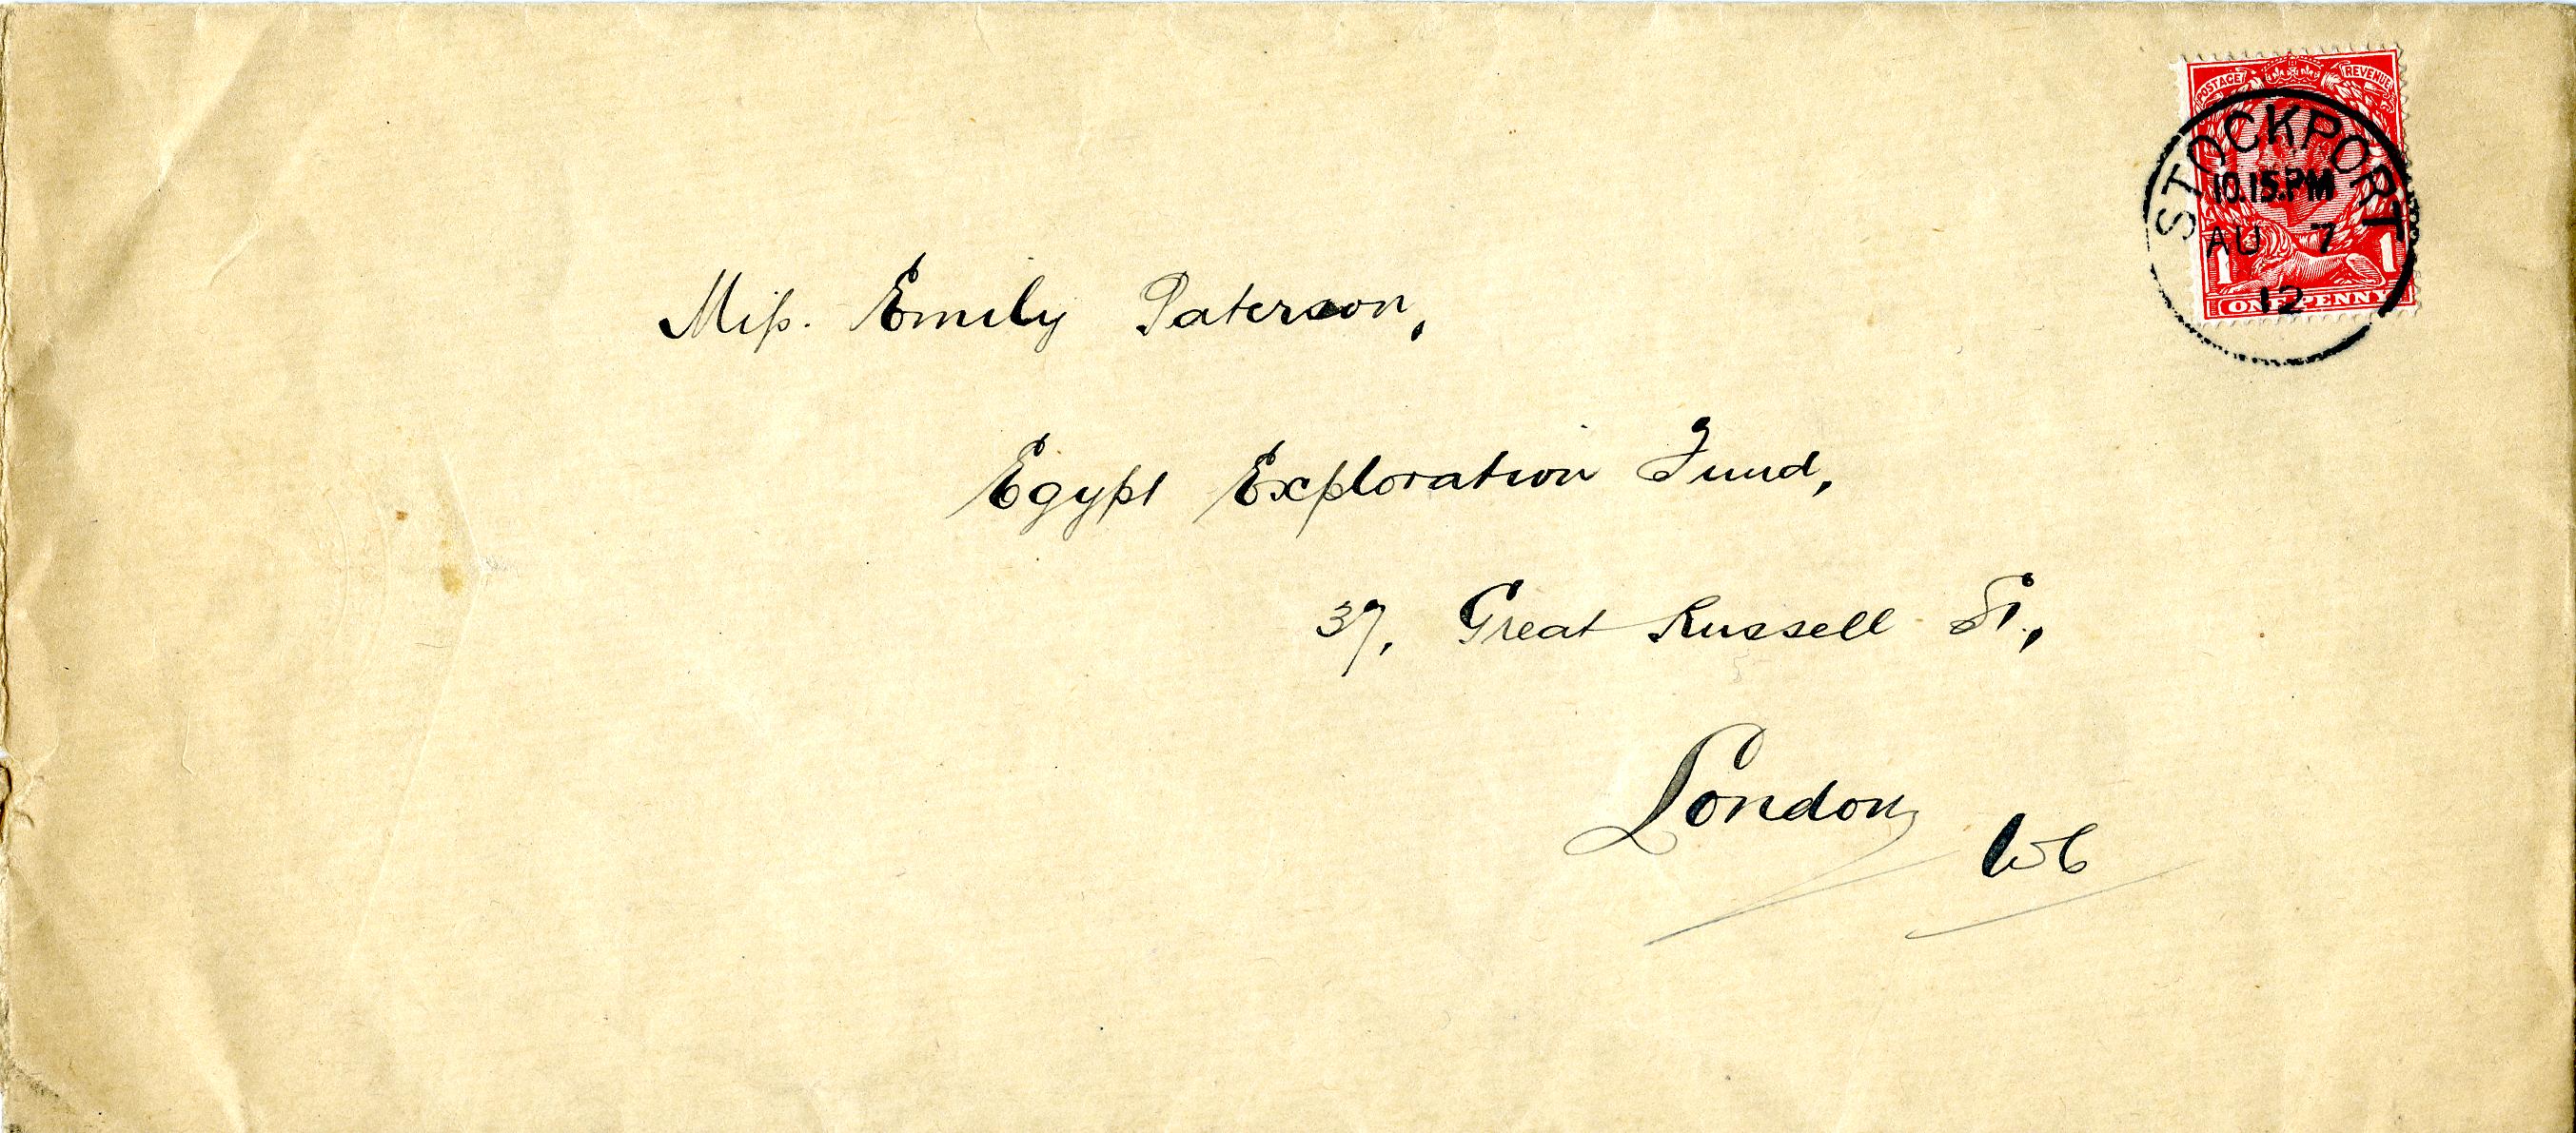 POSTAGE REVENUE
STOCKPORT
10.15.PM
AU 7
12
1 1
ONE PENNY
Miss. Emily Paterson,
Egypt Exploration Fund,
37, Great Russell St.,
London
WC